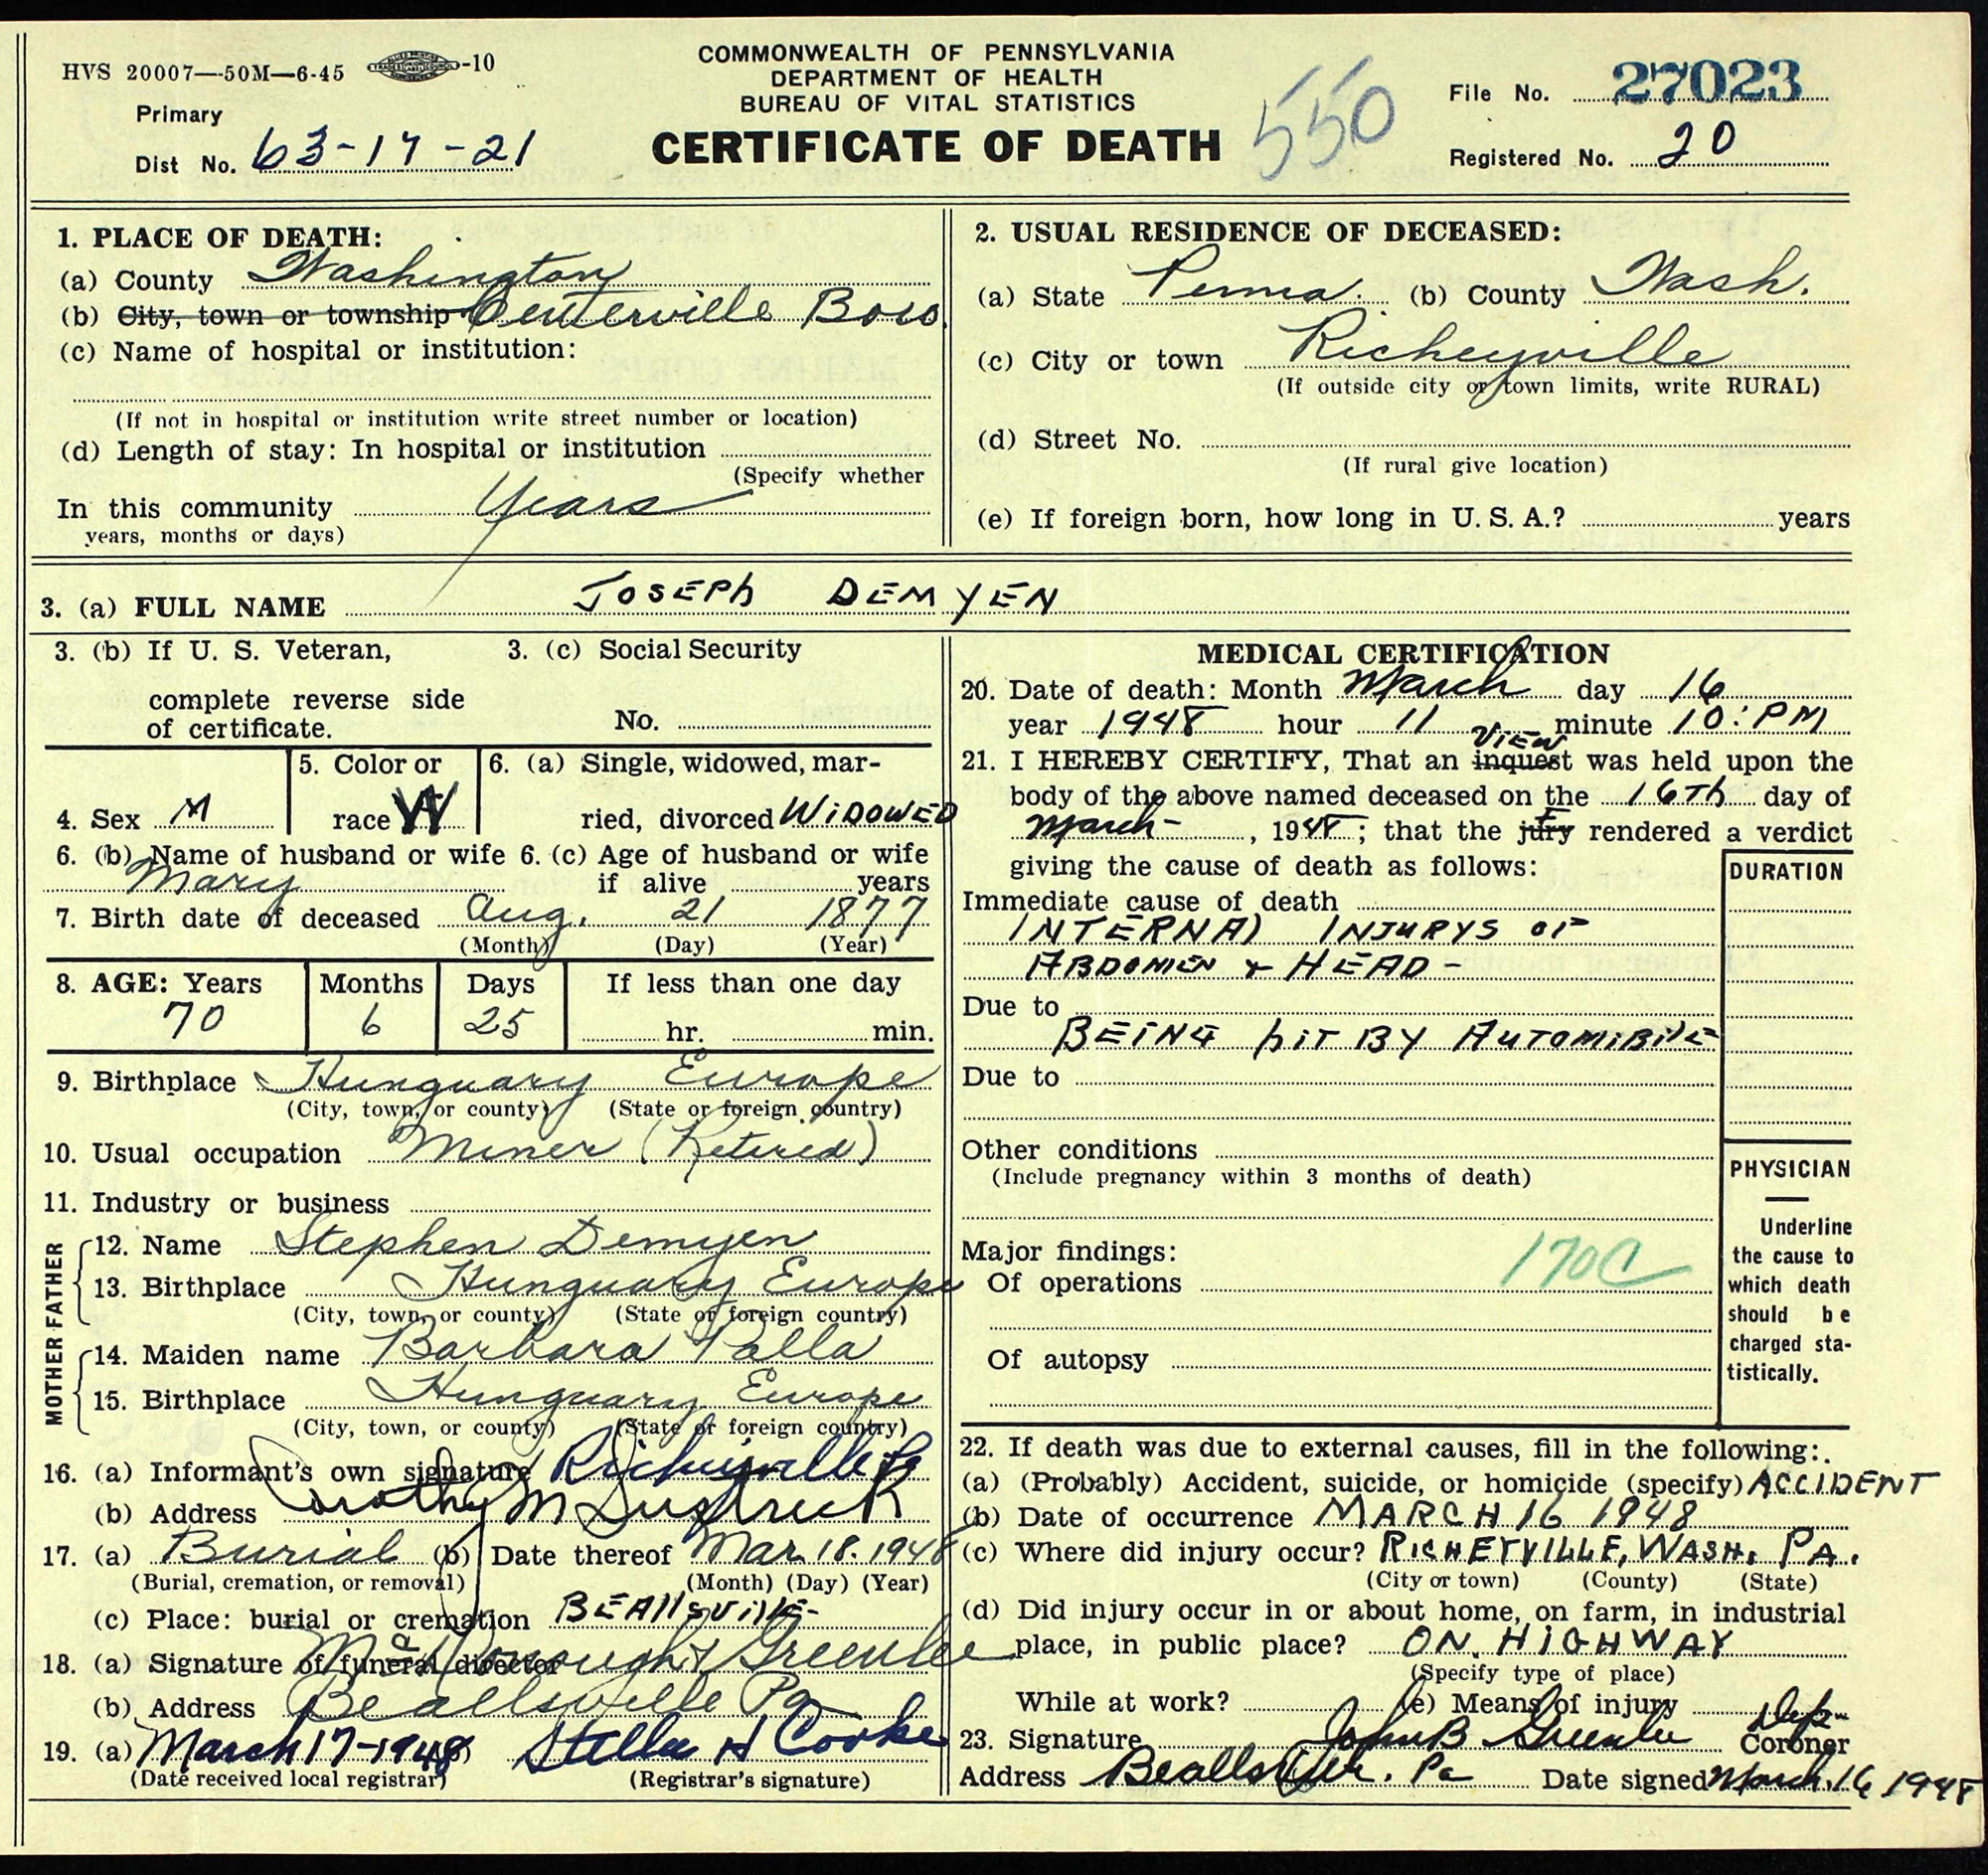 HVS 20007—50M—6-45 -10
COMMONWEALTH OF PENNSYLVANIA
DEPARTMENT OF HEALTH
BUREAU OF VITAL STATISTICS
CERTIFICATE OF DEATH
550
File No. 27023
Registered No. 20
Primary
Dist No. 63-17-21
1. PLACE OF DEATH:
(a) County Washington
(b) City, town or township Centerville Boro.
(c) Name of hospital or institution:
(If not in hospital or institution write street number or location)
(d) Length of stay: In hospital or institution
(Specify whether
In this community Years
years, months or days)
2. USUAL RESIDENCE OF DECEASED:
(a) State Penna. (b) County Wash.
(c) City or town Richeyville
(If outside city or town limits, write RURAL)
(d) Street No.
(If rural give location)
(e) If foreign born, how long in U. S. A.? years
3. (a) FULL NAME JOSEPh DEMYEN
3. (b) If U. S. Veteran,
complete reverse side
of certificate.
3. (c) Social Security
No.
4. Sex M
5. Color or
race W
6. (a) Single, widowed, mar-
ried, divorced WiDOWED
6. (b) Name of husband or wife
Mary
6. (c) Age of husband or wife
if alive years
7. Birth date of deceased Aug. 21 1877
(Month) (Day) (Year)
8. AGE: Years Months Days If less than one day
70 6 25 hr. min.
9. Birthplace Hunguary Europe
(City, town, or county) (State or foreign country)
10. Usual occupation Miner (Retired)
11. Industry or business
FATHER
12. Name Stephen Demyen
13. Birthplace Hunguary Europe
(City, town, or county) (State or foreign country)
MOTHER
14. Maiden name Barbara Palla
15. Birthplace Hunguary Europe
(City, town, or county) (State or foreign country)
16. (a) Informant's own signature Richeyville Pa
(b) Address Dorothy M
17. (a) Burial (b) Date thereof Mar. 18. 1948
(Burial, cremation, or removal) (Month) (Day) (Year)
(c) Place: burial or cremation BEAllsvillE-
18. (a) Signature of funeral director McDonough & Greenlee
(b) Address Beallsville Pa
19. (a) March 17-1948 Stella H Cooke
(Date received local registrar) (Registrar's signature)
MEDICAL CERTIFICATION
20. Date of death: Month March day 16
year 1948 hour 11 minute 10: PM
21. I HEREBY CERTIFY, That an inquest ViEW was held upon the
body of the above named deceased on the 16Th day of
March- , 1948; that the jury I rendered a verdict
giving the cause of death as follows:
DURATION
Immediate cause of death
INTERNAl INJURYS OF
ABDOMEN & HEAD-
Due to
BEiNG hiT BY AUTOMiBilE
Due to
Other conditions
(Include pregnancy within 3 months of death)
PHYSICIAN
Underline
the cause to
which death
should be
charged sta-
tistically.
Major findings:
Of operations 170C
Of autopsy
22. If death was due to external causes, fill in the following:
(a) (Probably) Accident, suicide, or homicide (specify) ACCIDENT
(b) Date of occurrence MARCH 16 1948
(c) Where did injury occur? RICHEYVILLE, WASH. PA.
(City or town) (County) (State)
(d) Did injury occur in or about home, on farm, in industrial
place, in public place? ON HIGHWAY
(Specify type of place)
While at work? (e) Means of injury
23. Signature John B Greenlee Dep- Coroner
Address Beallsville. Pa Date signed March. 16 1948